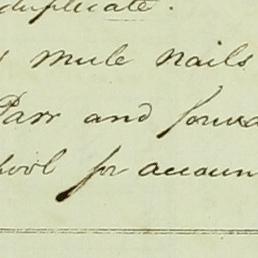 duplicate.
mule nails
Parr and forwa
pool for accoun